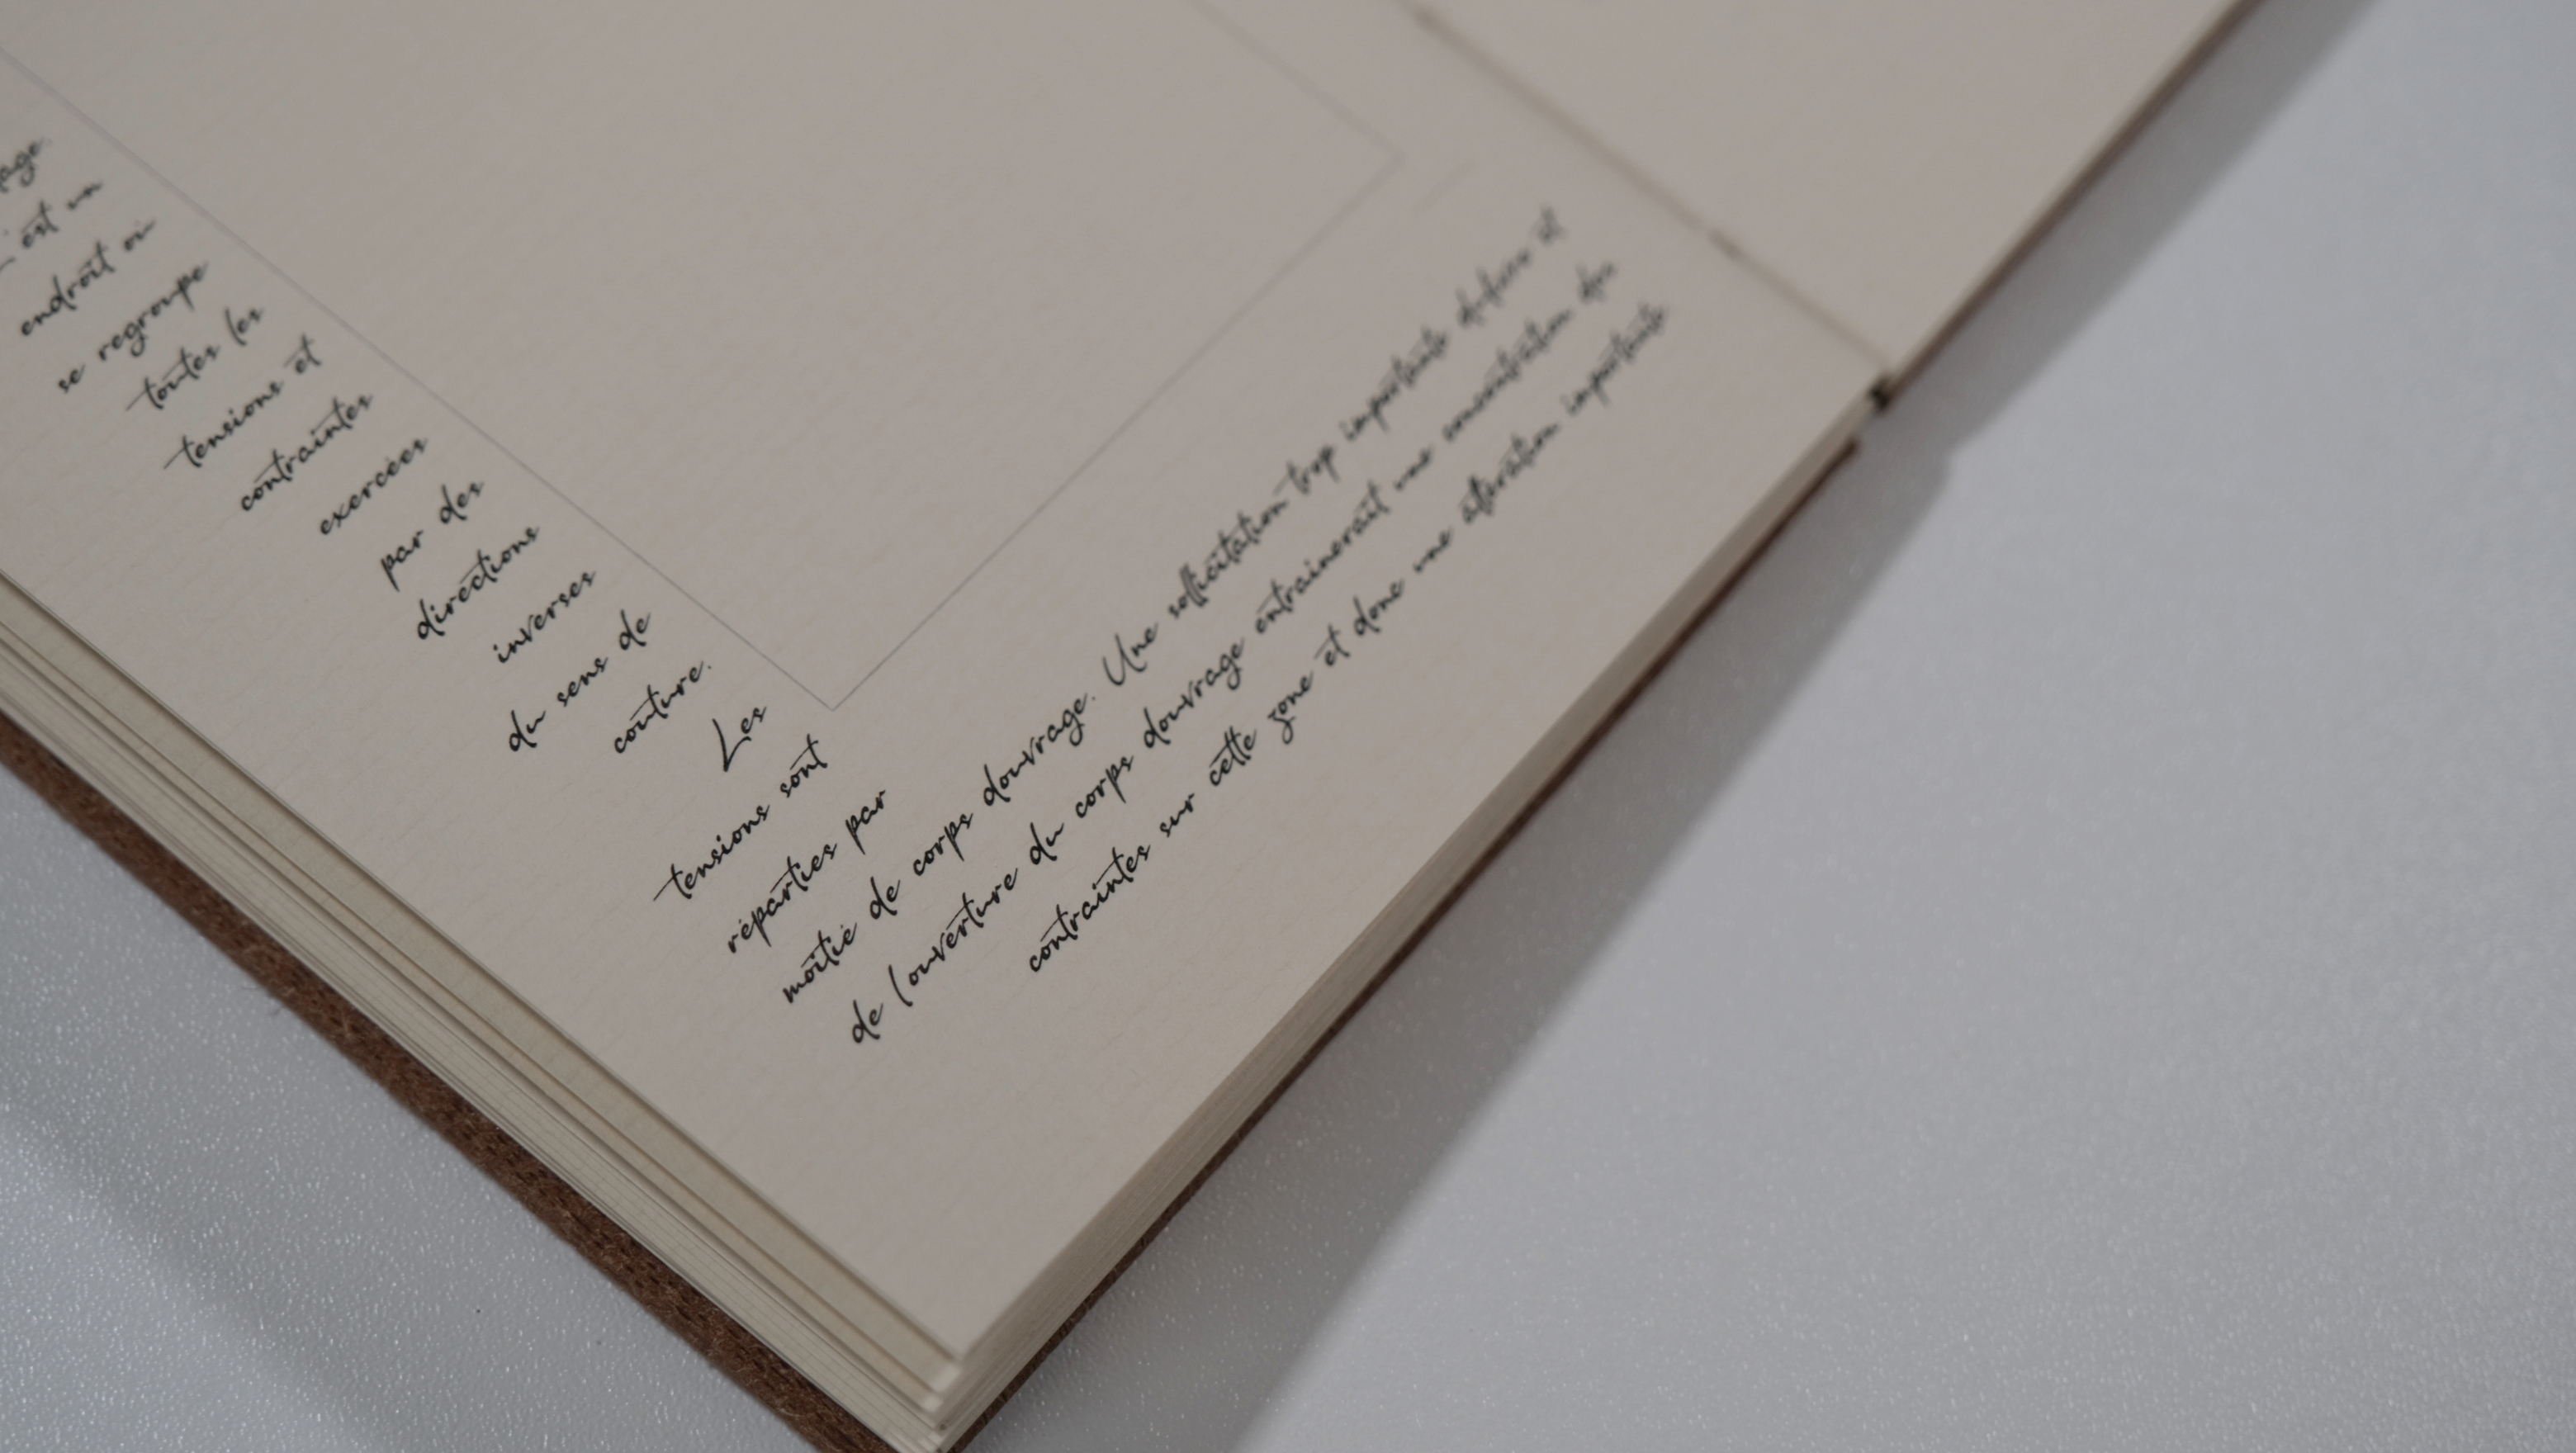 est un
endroit où
se regroupe
toutes les
tensions et
contraintes
exercées
par des
directions
inverses
du sens de
couture.
Les
tensions sont
réparties par
moitié de corps douvrage. Une sollicitation trop importante et
de louverture du corps douvrage entrainerait une concentration des
contraintes sur cette zone et donc une altération importante